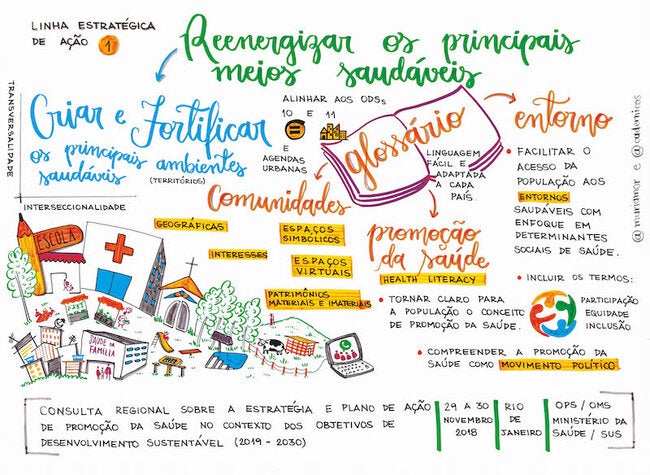 LINHA ESTRATÉGICA
DE AÇÃO 1
Reenergizar os principais
meios saudáveis
TRANSVERSALIDADE
Criar e Fortificar
os principais ambientes
saudáveis (TERRITÓRIOS)
INTERSECCIONALIDADE
ALINHAR AOS ODSs
10 E 11
E
AGENDAS
URBANAS
glossário
LINGUAGEM
FÁCIL E
ADAPTADA
A CADA
PAÍS
entorno
• FACILITAR O
ACESSO DA
POPULAÇÃO AOS
ENTORNOS
SAUDÁVEIS COM
ENFOQUE EM
DETERMINANTES
SOCIAIS DE SAÚDE.
• INCLUIR OS TERMOS:
PARTICIPAÇÃO
EQUIDADE
INCLUSÃO
Comunidades
GEOGRÁFICAS
ESPAÇOS
SIMBÓLICOS
INTERESSES
ESPAÇOS
VIRTUAIS
PATRIMÔNIOS
MATERIAIS E IMATERIAIS
promoção
da saúde
HEALTH LITERACY
• TORNAR CLARO PARA
A POPULAÇÃO O CONCEITO
DE PROMOÇÃO DA SAÚDE.
• COMPREENDER A PROMOÇÃO DA
SAÚDE COMO MOVIMENTO POLÍTICO.
ESCOLA
SAÚDE DA
FAMÍLIA
CONSULTA REGIONAL SOBRE A ESTRATÉGIA E PLANO DE AÇÃO
DE PROMOÇÃO DA SAÚDE NO CONTEXTO DOS OBJETIVOS DE
DESENVOLVIMENTO SUSTENTÁVEL (2019 - 2030)
29 A 30
NOVEMBRO
2018
RIO
DE
JANEIRO
OPS / OMS
MINISTÉRIO DA
SAÚDE / SUS